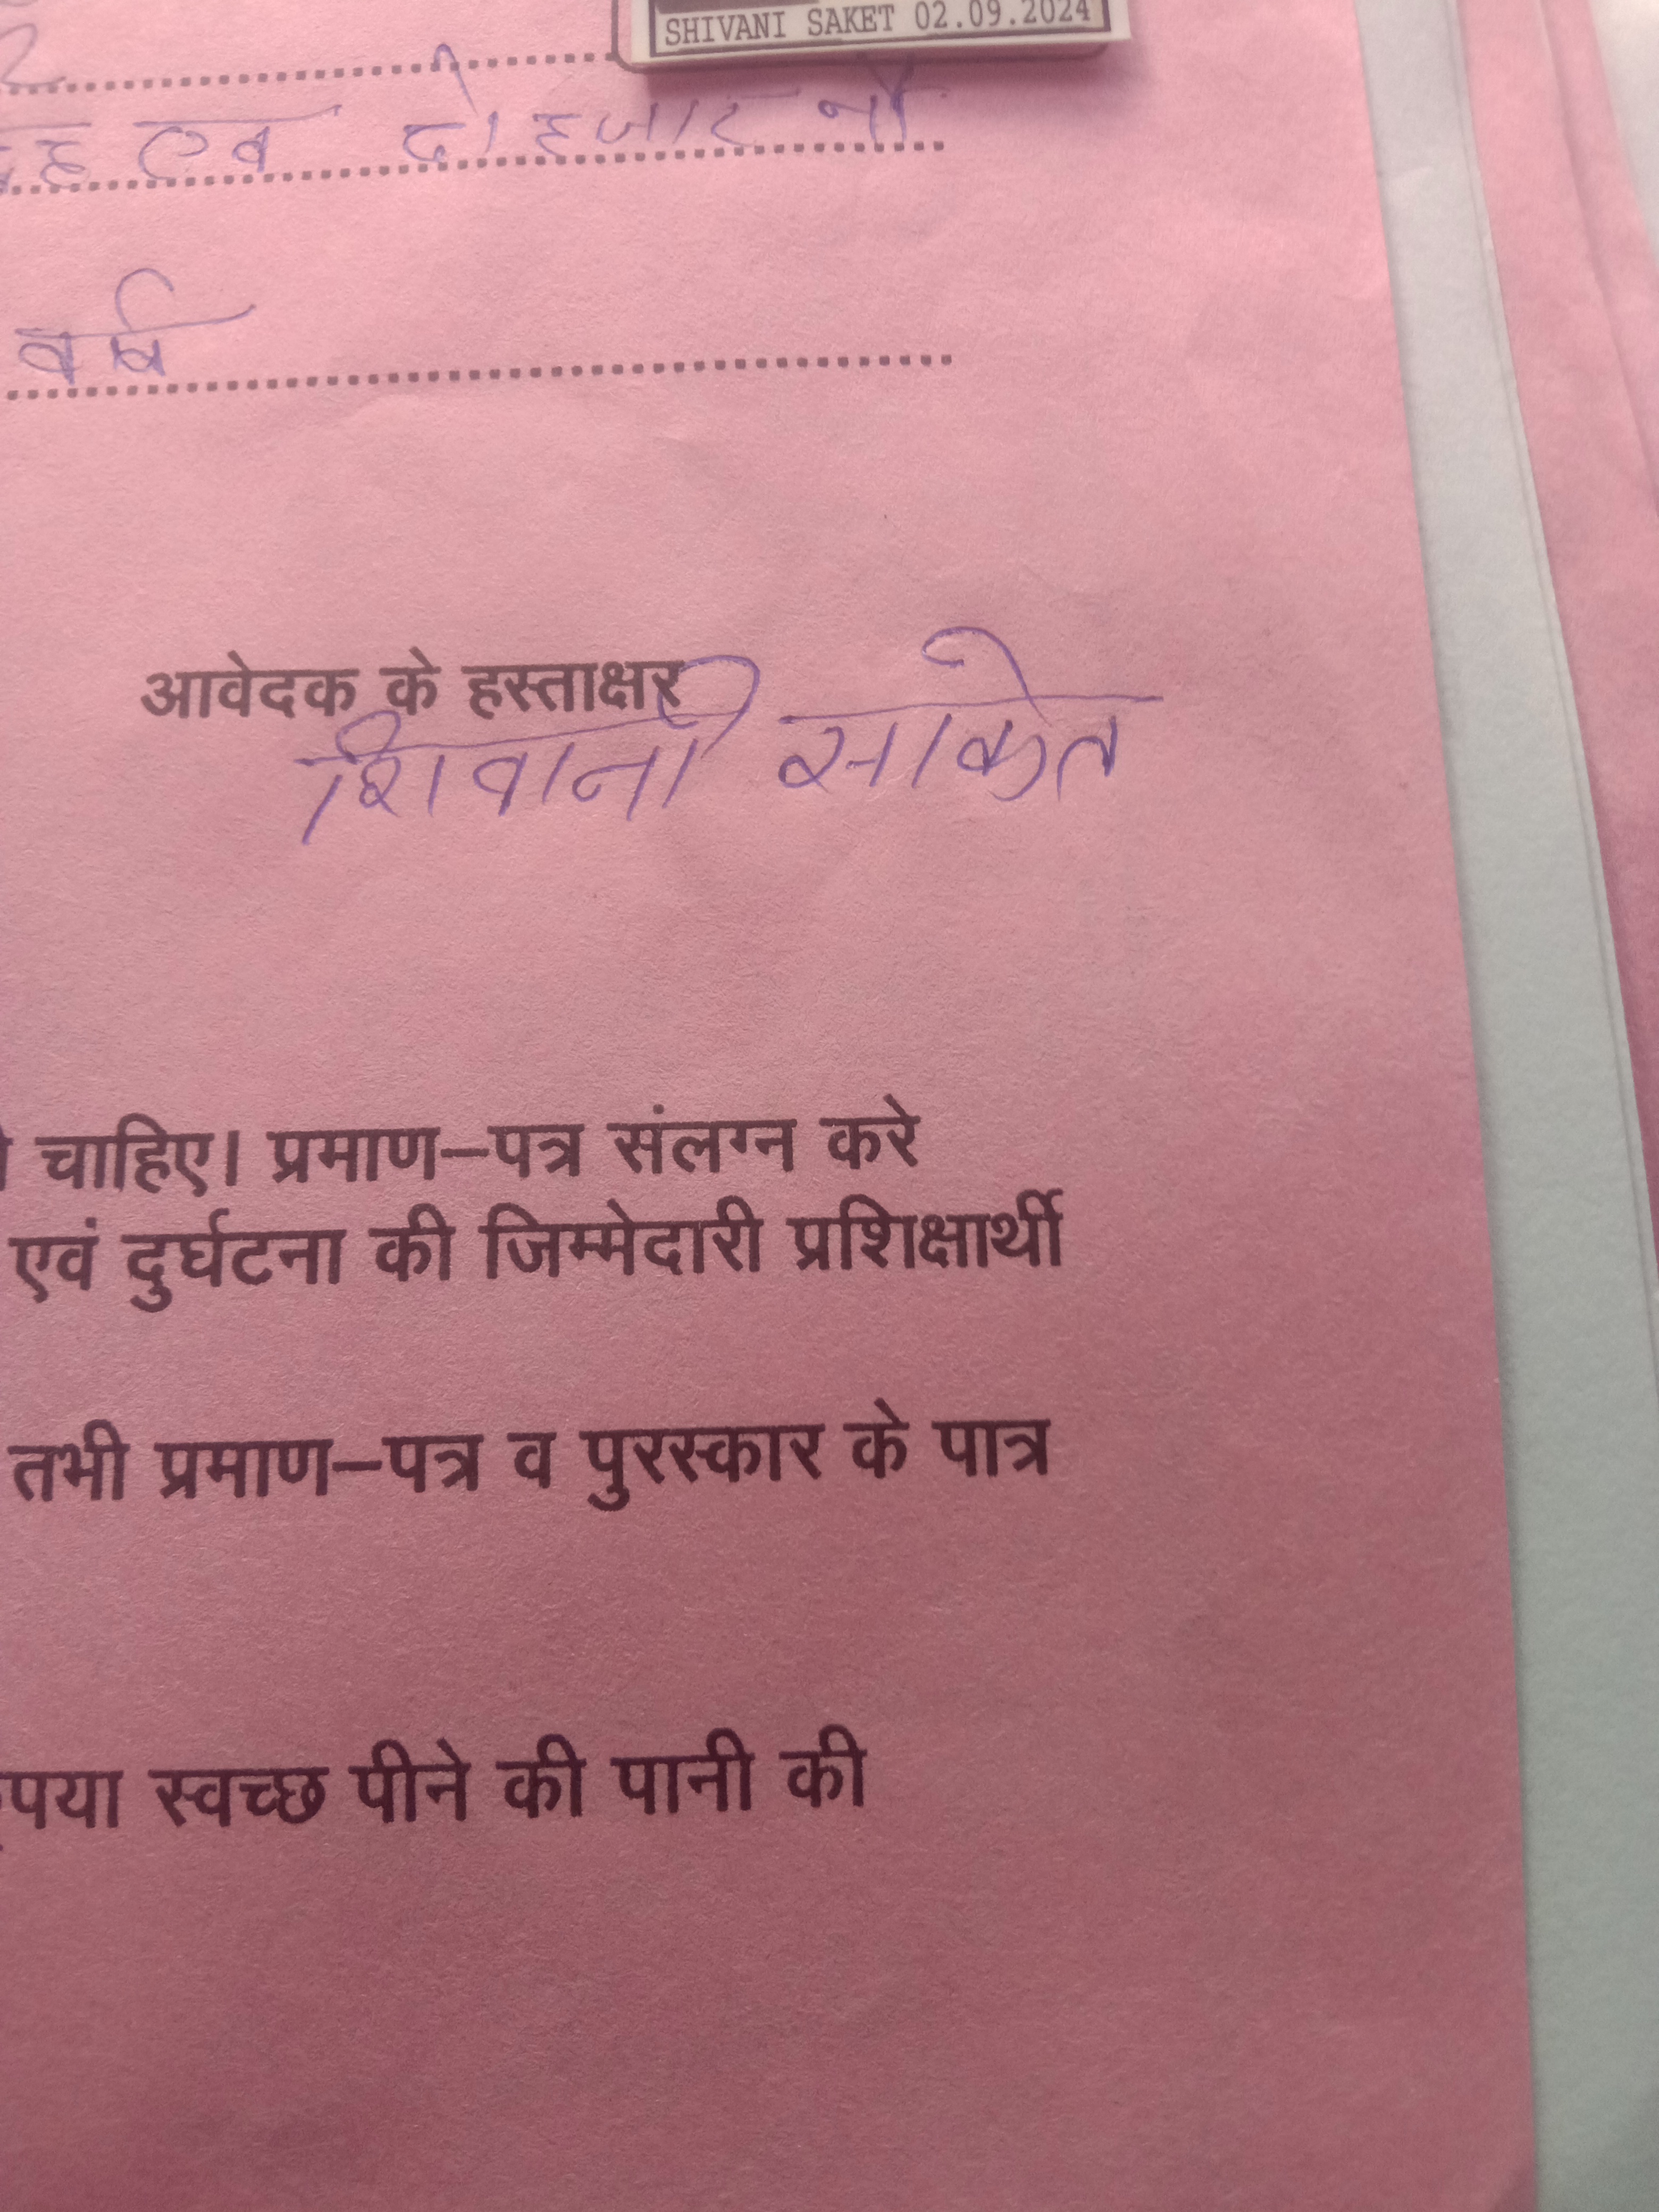 SHIVANI SAKET 02.09.2024
एव दो हजार नौ
वर्ष
आवेदक के हस्ताक्षर
शिवानी साकेत
चाहिए। प्रमाण–पत्र संलग्न करे
एवं दुर्घटना की जिम्मेदारी प्रशिक्षार्थी
तभी प्रमाण–पत्र व पुरस्कार के पात्र
स्वच्छ पीने की पानी की